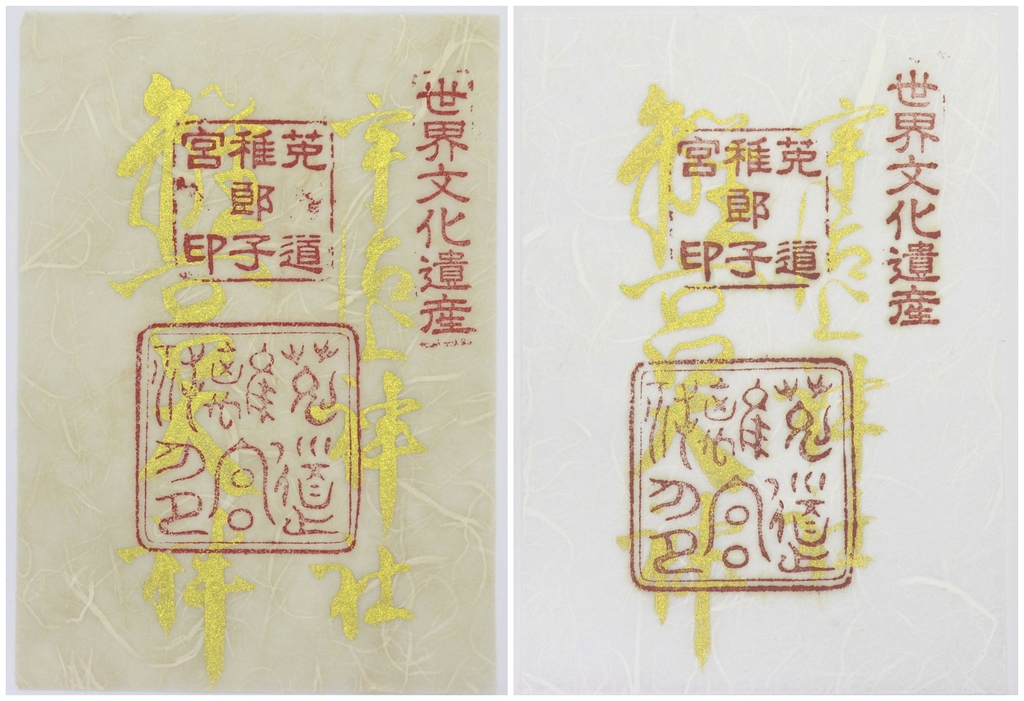 世界文化遺産
宇治上神社
離宮太神
菟道
稚郎子
宮印
世界文化遺産
宇治上神社
離宮太神
菟道
稚郎子
宮印